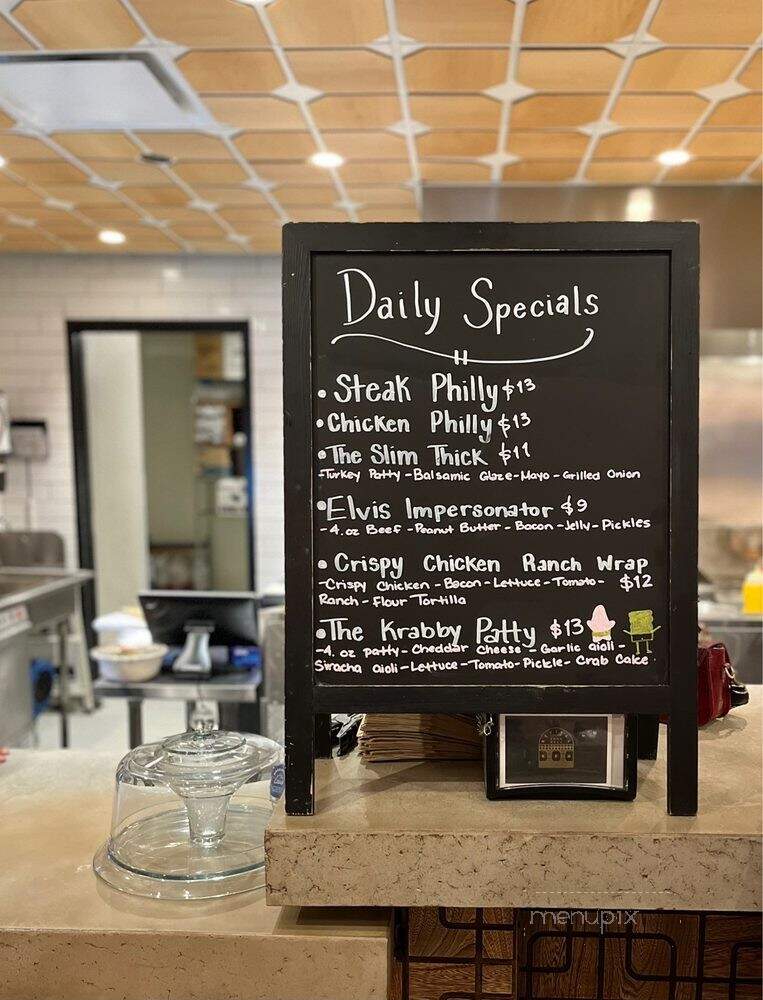 Daily Specials
• Steak Philly $13
• Chicken Philly $13
• The Slim Thick $11
-Turkey Patty - Balsamic Glaze - Mayo - Grilled Onion
• Elvis Impersonator $9
- 4.oz Beef - Peanut Butter - Bacon - Jelly - Pickles
• Crispy Chicken Ranch Wrap
-Crispy Chicken - Bacon - Lettuce - Tomato - $12
Ranch - Flour Tortilla
• The Krabby Patty $13
-4. oz patty - Cheddar Cheese - Garlic aioli -
Siracha aioli - Lettuce - Tomato - Pickle - Crab Cake
menupix